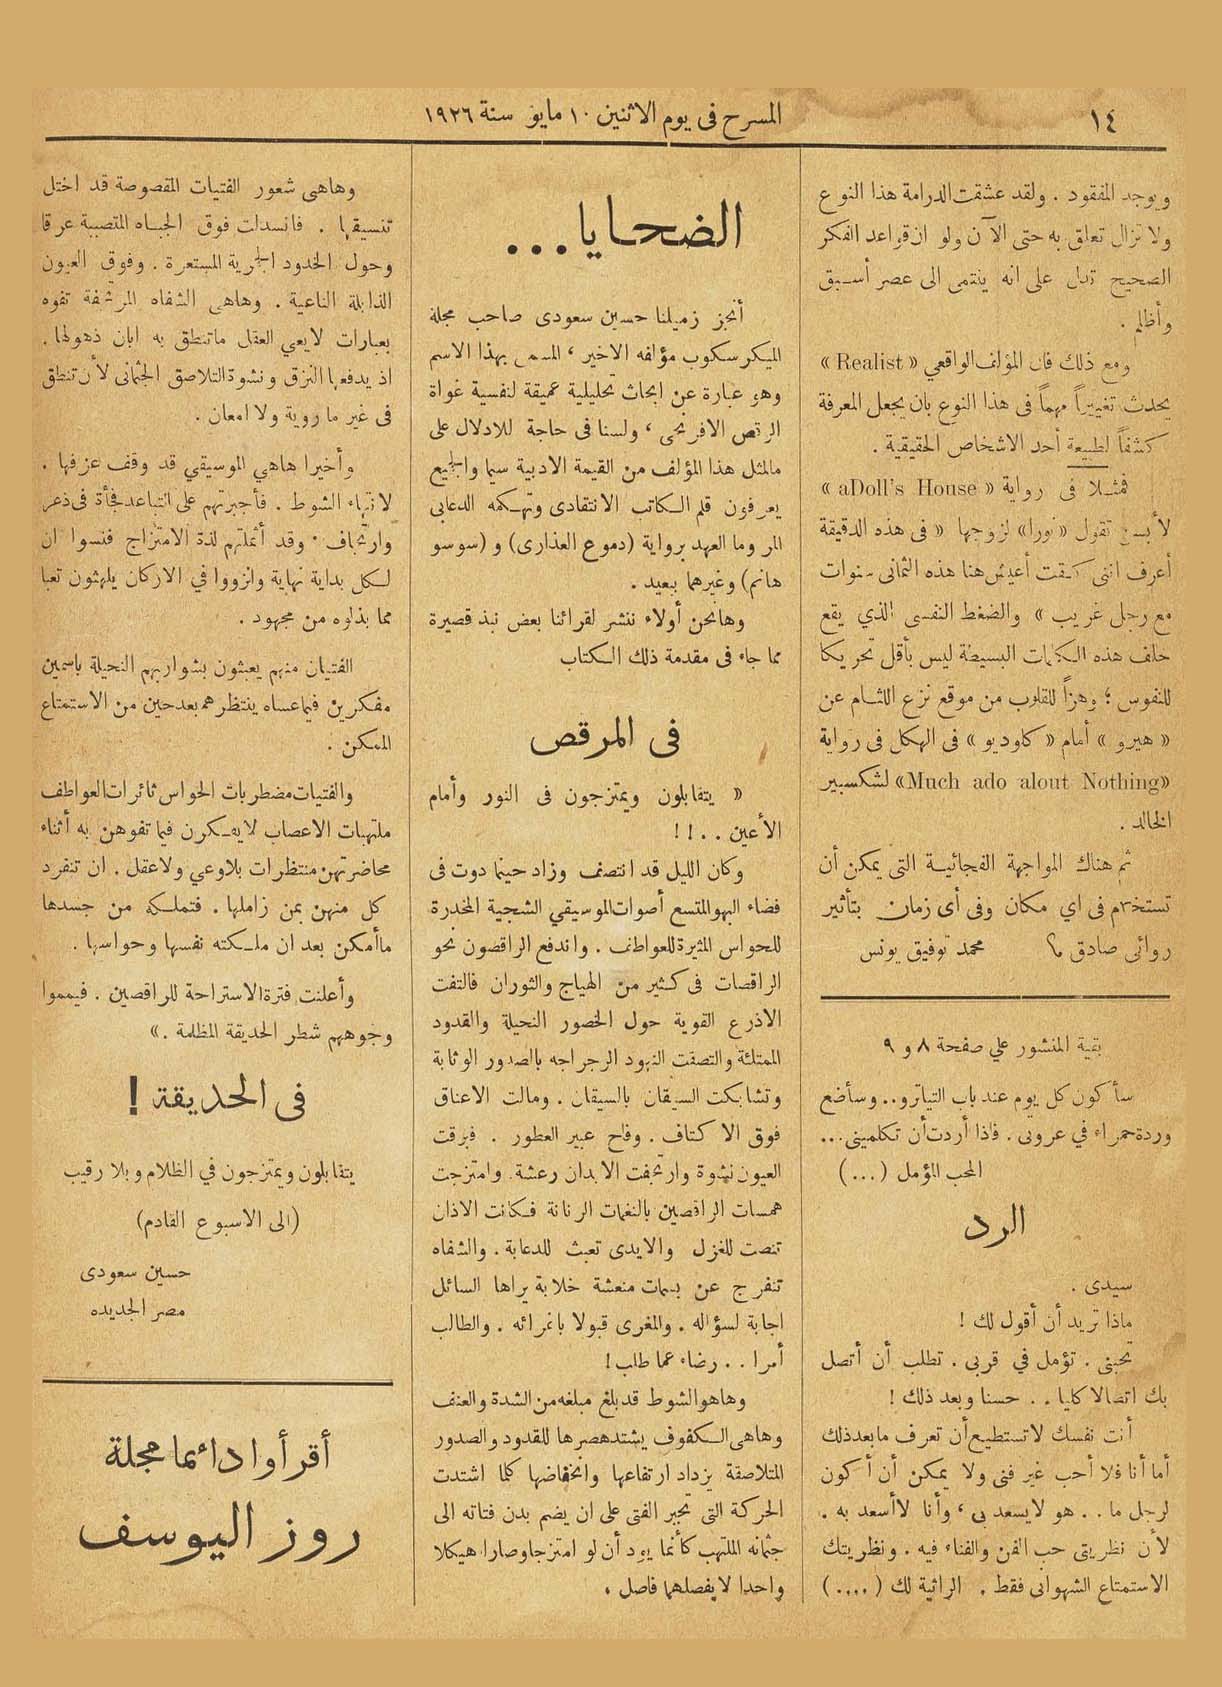 ١٤
المسرح فى يوم الاثنين ١٠ مايو سنة ١٩٢٦
ويوجد المفقود . ولقد عشقت الدرامة هذا النوع
ولا تزال تعلق به حتى الآن ولو ان قواعد الفكر
الصحيح تدل على انه ينتمى الى عصر أسبق
وأظلم .
ومع ذلك فان المؤلف الواقعي « Realist »
يحدث تغييراً مهماً فى هذا النوع بان يجعل المعرفة
كشفاً لطبيعة أحد الاشخاص الحقيقية .
فمثلا فى رواية « aDoll's House »
لأبسن تقول «نورا» لزوجها « فى هذه الدقيقة
أعرف اننى كنت أعيش هنا هذه الثمانى سنوات
مع رجل غريب » والضغط النفسى الذي يقع
خلف هذه الكلمات البسيطة ليس بأقل تحريكا
للنفوس ؛ وهزاً للقلوب من موقع نزع اللثام عن
« هيرو » أمام « كلوديو » فى الهيكل فى رواية
«Much ado alout Nothing» لشكسبير
الخالد .
ثم هناك المواجهة الفجائية التى يمكن أن
تستخدم فى اي مكان وفى أى زمان بتأثير
روائى صادق ؟ محمد توفيق يونس
بقية المنشور علي صفحة ٨ و ٩
سأكون كل يوم عند باب التياترو.. وسأضع
وردة حمراء في عروتى . فاذا أردت أن تكلمينى ...
المحب المؤمل (...)
الرد
سيدى .
ماذا تريد أن أقول لك !
تحبنى . تؤمل في قربى . تطلب أن أتصل
بك اتصالا كليا .. حسنا وبعد ذلك !
أنت نفسك لا تستطيع أن تعرف ما بعد ذلك
أما أنا فلا أحب غير فنى ولا يمكن أن أكون
لرجل ما .. هو لا يسعد بى ، وأنا لا أسعد به .
لأن نظريتى حب الفن والفناء فيه . ونظريتك
الاستمتاع الشهوانى فقط . الراثية لك (....)
الضحايا...
أنجز زميلنا حسين سعودى صاحب مجلة
الميكرسكوب مؤلفه الاخير ، المسمى بهذا الاسم
وهو عبارة عن ابحاث تحليلية عميقة لنفسية غواة
الرقص الافرنجى ، ولسنا فى حاجة للادلال على
مالمثل هذا المؤلف من القيمة الادبية سيما والجميع
يعرفون قلم الكاتب الانتقادى وتهكمه الدعابى
المر وما العهد برواية (دموع العذارى) و (سوسو
هانم) وغيرهما ببعيد .
وهانحن أولاء ننشر لقرائنا بعض نبذ قصيرة
مما جاء فى مقدمة ذلك الكتاب
فى المرقص
« يتقابلون ويمتزجون فى النور وأمام
الأعين ..!!
وكان الليل قد انتصف وزاد حينما دوت فى
فضاء البهو المتسع أصوات الموسيقي الشجية المخدرة
للحواس المثيرة للعواطف . واندفع الراقصون نحو
الراقصات فى كثير من الهياج والثوران فالتفت
الاذرع القوية حول الخصور النحيلة والقدود
الممتلئة والتصقت النهود الرجراجه بالصدور الوثابة
وتشابكت السيقان بالسيقان . ومالت الاعناق
فوق الاكتاف . وفاح عبير العطور . فبرقت
العيون نشوة وارتجفت الابدان رعشة وامتزجت
همسات الراقصين بالنغمات الرنانة فكانت الاذان
تنصت للغزل والايدى تعبث للدعابة . والشفاه
تنفرج عن بسمات منعشة خلابة يراها السائل
اجابة لسؤاله . والمغرى قبولا باغرائه . والطالب
أمرا .. رضاء عما طلب !
وهاهو الشوط قد بلغ مبلغه من الشدة والعنف
وهاهى الكفوف يشتد هصرها للقدود والصدور
المتلاصقة يزداد ارتفاعها وانخفاضها كلما اشتدت
الحركة التى تجبر الفتى على ان يضم بدن فتاته الى
جثمانه الملتهب كأنما يود أن لو امتزجا وصارا هيكلا
واحدا لا يفصلهما فاصل .
وهاهى شعور الفتيات المقصوصة قد اختل
تنسيقها . فانسدلت فوق الجباه المتصببة عرقا
وحول الخدود الجمرية المستعرة . وفوق العيون
الذابلة الناعية . وهاهى الشفاه المرتجفة تفوه
بعبارات لايعي العقل ماتنطق به ابان ذهولها .
اذ يدفعها النزق ونشوة التلاصق الجثمانى لأن تنطق
فى غير ما روية ولا امعان .
وأخيرا هاهي الموسيقي قد وقف عزفها .
لانتهاء الشوط . فأجبرتهم على التباعد فجأة فى ذعر
وارتجاف . وقد أثملتهم لذة الامتزاج فنسوا ان
لكل بداية نهاية وانزووا في الاركان يلهثون تعبا
مما بذلوه من مجهود .
الفتيان منهم يعبثون بشواربهم النحيلة باسمين
مفكرين فيما عساه ينتظرهم بعد حين من الاستمتاع
الممكن .
والفتيات مضطربات الحواس ثائرات العواطف
ملتهبات الاعصاب لايفكرن فيما تفوهن به أثناء
محاضرتهن منتظرات بلا وعي ولا عقل . ان تنفرد
كل منهن بمن زاملها . فتملكه من جسدها
ماأمكن بعد ان ملكته نفسها وحواسها .
وأعلنت فترة الاستراحة للراقصين . فيمموا
وجوههم شطر الحديقة المظلمة . »
فى الحديقة !
يتقابلون ويمتزجون في الظلام وبلا رقيب
(الى الاسبوع القادم)
حسين سعودى
مصر الجديده
أقرأوا دائما مجلة
روز اليوسف